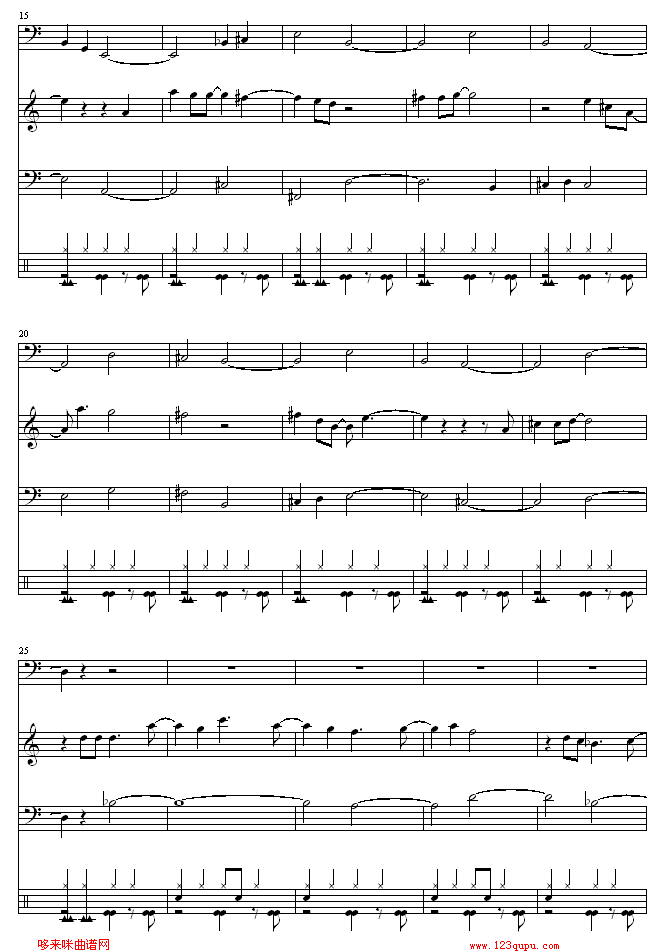 15
20
25
哆来咪曲谱网
www.123qupu.com